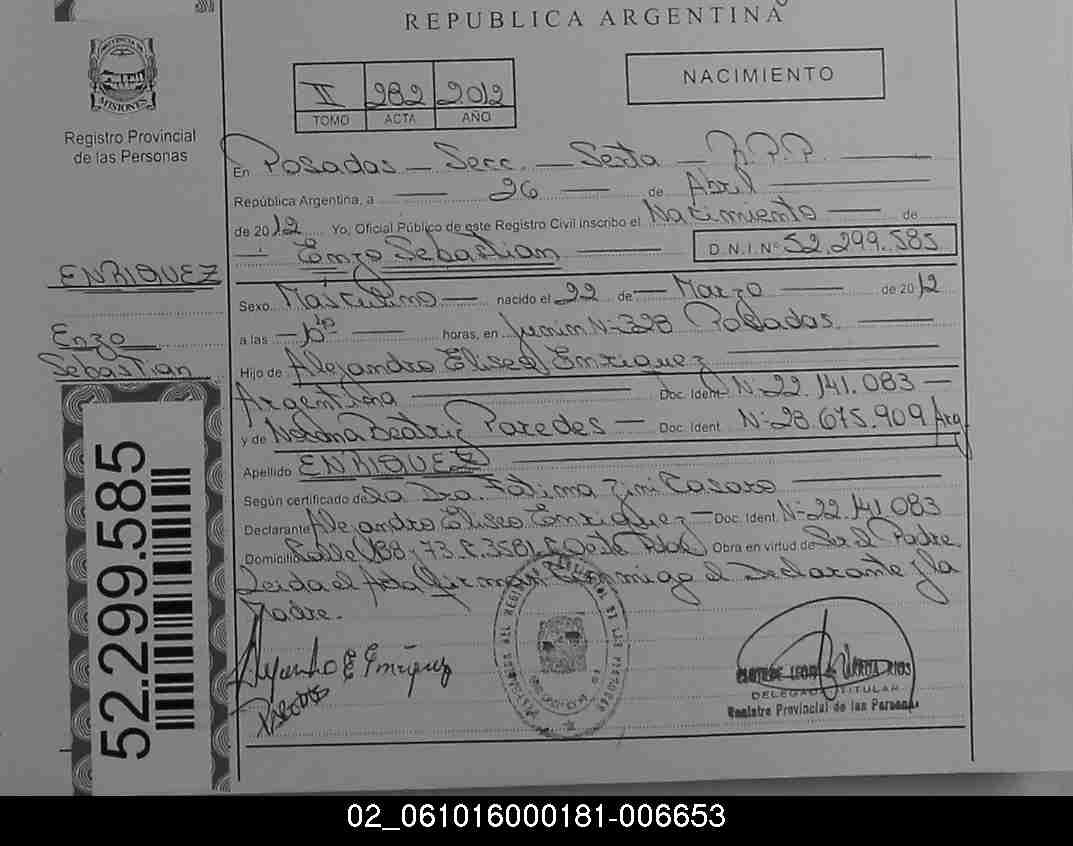 REPUBLICA ARGENTINA
PROVINCIA DE
MISIONES
Registro Provincial
de las Personas
II 282 2012
TOMO ACTA AÑO
NACIMIENTO
En Posadas — Secc. — Sexta — R.P.P. —
República Argentina, a — 26 — de Abril —
de 2012 Yo, Oficial Público de este Registro Civil inscribo el Nacimiento — de
— Enzo Sebastian — D.N.I. Nº 52.299.585
ENRIQUEZ
Enzo
Sebastian
Sexo Masculino — nacido el 22 de — Marzo — de 2012
a las — — horas, en Junin Nº 328 Posadas. —
Hijo de Alejandro Eliseo Enriquez —
Argentina — Doc. Ident. Nº 22.141.083 —
y de Norma Beatriz Paredes — Doc. Ident. Nº 28.675.909 Arg
Apellido ENRIQUEZ
Según certificado de la Dra. Fatima Zini Casaro —
Declarante Alejandro Eliseo Enriquez — Doc. Ident. Nº 22.141.083
Domicilio Calle 188 y 73 C. 3581 Obra en virtud de Ser el Padre
Leida el Acta Firman Conmigo el Declarante y la
Madre.
Alejandro E Enriquez
Paredes
DELEGADO TITULAR
Registro Provincial de las Personas
52.299.585
02_061016000181-006653